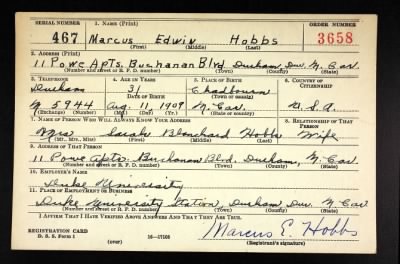 SERIAL NUMBER 1. NAME (Print) ORDER NUMBER
467 Marcus Edwin Hobbs 3658
(First) (Middle) (Last)
2. ADDRESS (Print)
11 Powe Apts. Buchanan Blvd. Durham, Dur. N. Car.
(Number and street or R. F. D. number) (Town) (County) (State)
3. TELEPHONE 4. AGE IN YEARS 5. PLACE OF BIRTH 6. COUNTRY OF CITIZENSHIP
Durham 31 Chadbourn
N 5944 Aug. 11, 1909 N. Car. U.S.A.
7. NAME OF PERSON WHO WILL ALWAYS KNOW YOUR ADDRESS 8. RELATIONSHIP OF THAT PERSON
Mrs Sarah Blanchard Hobbs Wife
(Mr., Mrs., Miss) (First) (Middle) (Last)
9. ADDRESS OF THAT PERSON
11 Powe Apts. Buchanan Blvd., Durham, N. Car
(Number and street or R. F. D. number) (Town) (County) (State)
10. EMPLOYER'S NAME
Duke University
11. PLACE OF EMPLOYMENT OR BUSINESS
Duke University Station, Durham, Dur. N. Car
(Number and street or R. F. D. number) (Town) (County) (State)
I AFFIRM THAT I HAVE VERIFIED ABOVE ANSWERS AND THAT THEY ARE TRUE.
REGISTRATION CARD
D. S. S. Form 1 16—17105 Marcus E. Hobbs
(over) (Registrant's signature)